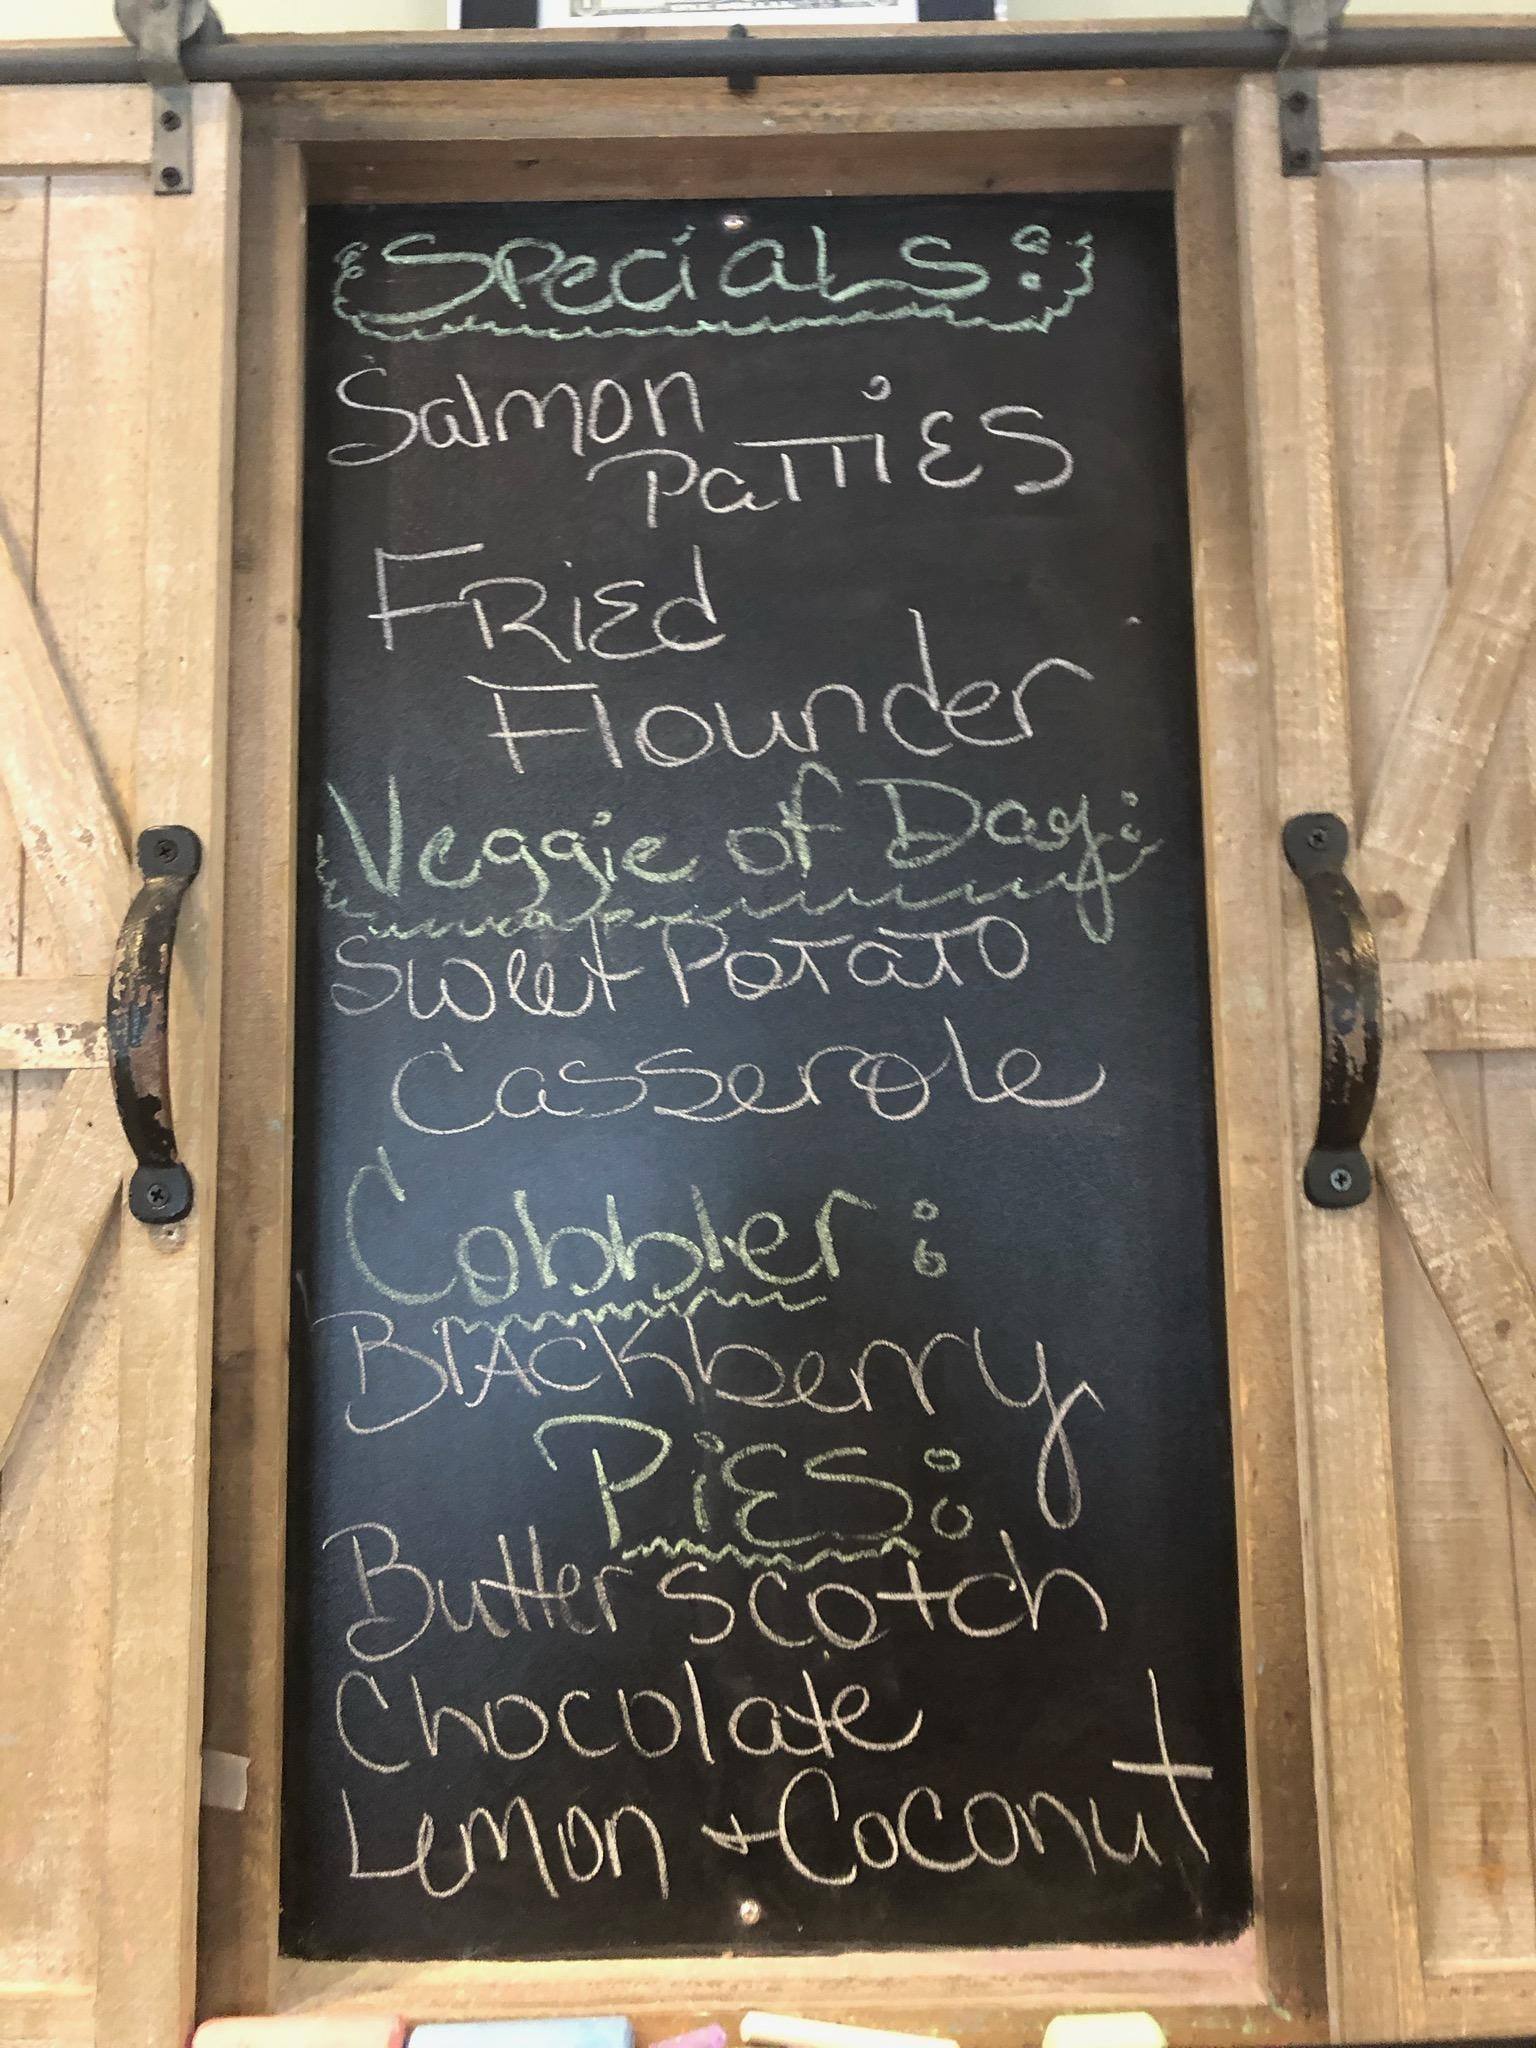 Specials:
Salmon
Patties
Fried
Flounder
Veggie of Day:
Sweet Potato
Casserole
Cobbler:
Blackberry
Pies:
Butterscotch
Chocolate
Lemon + Coconut